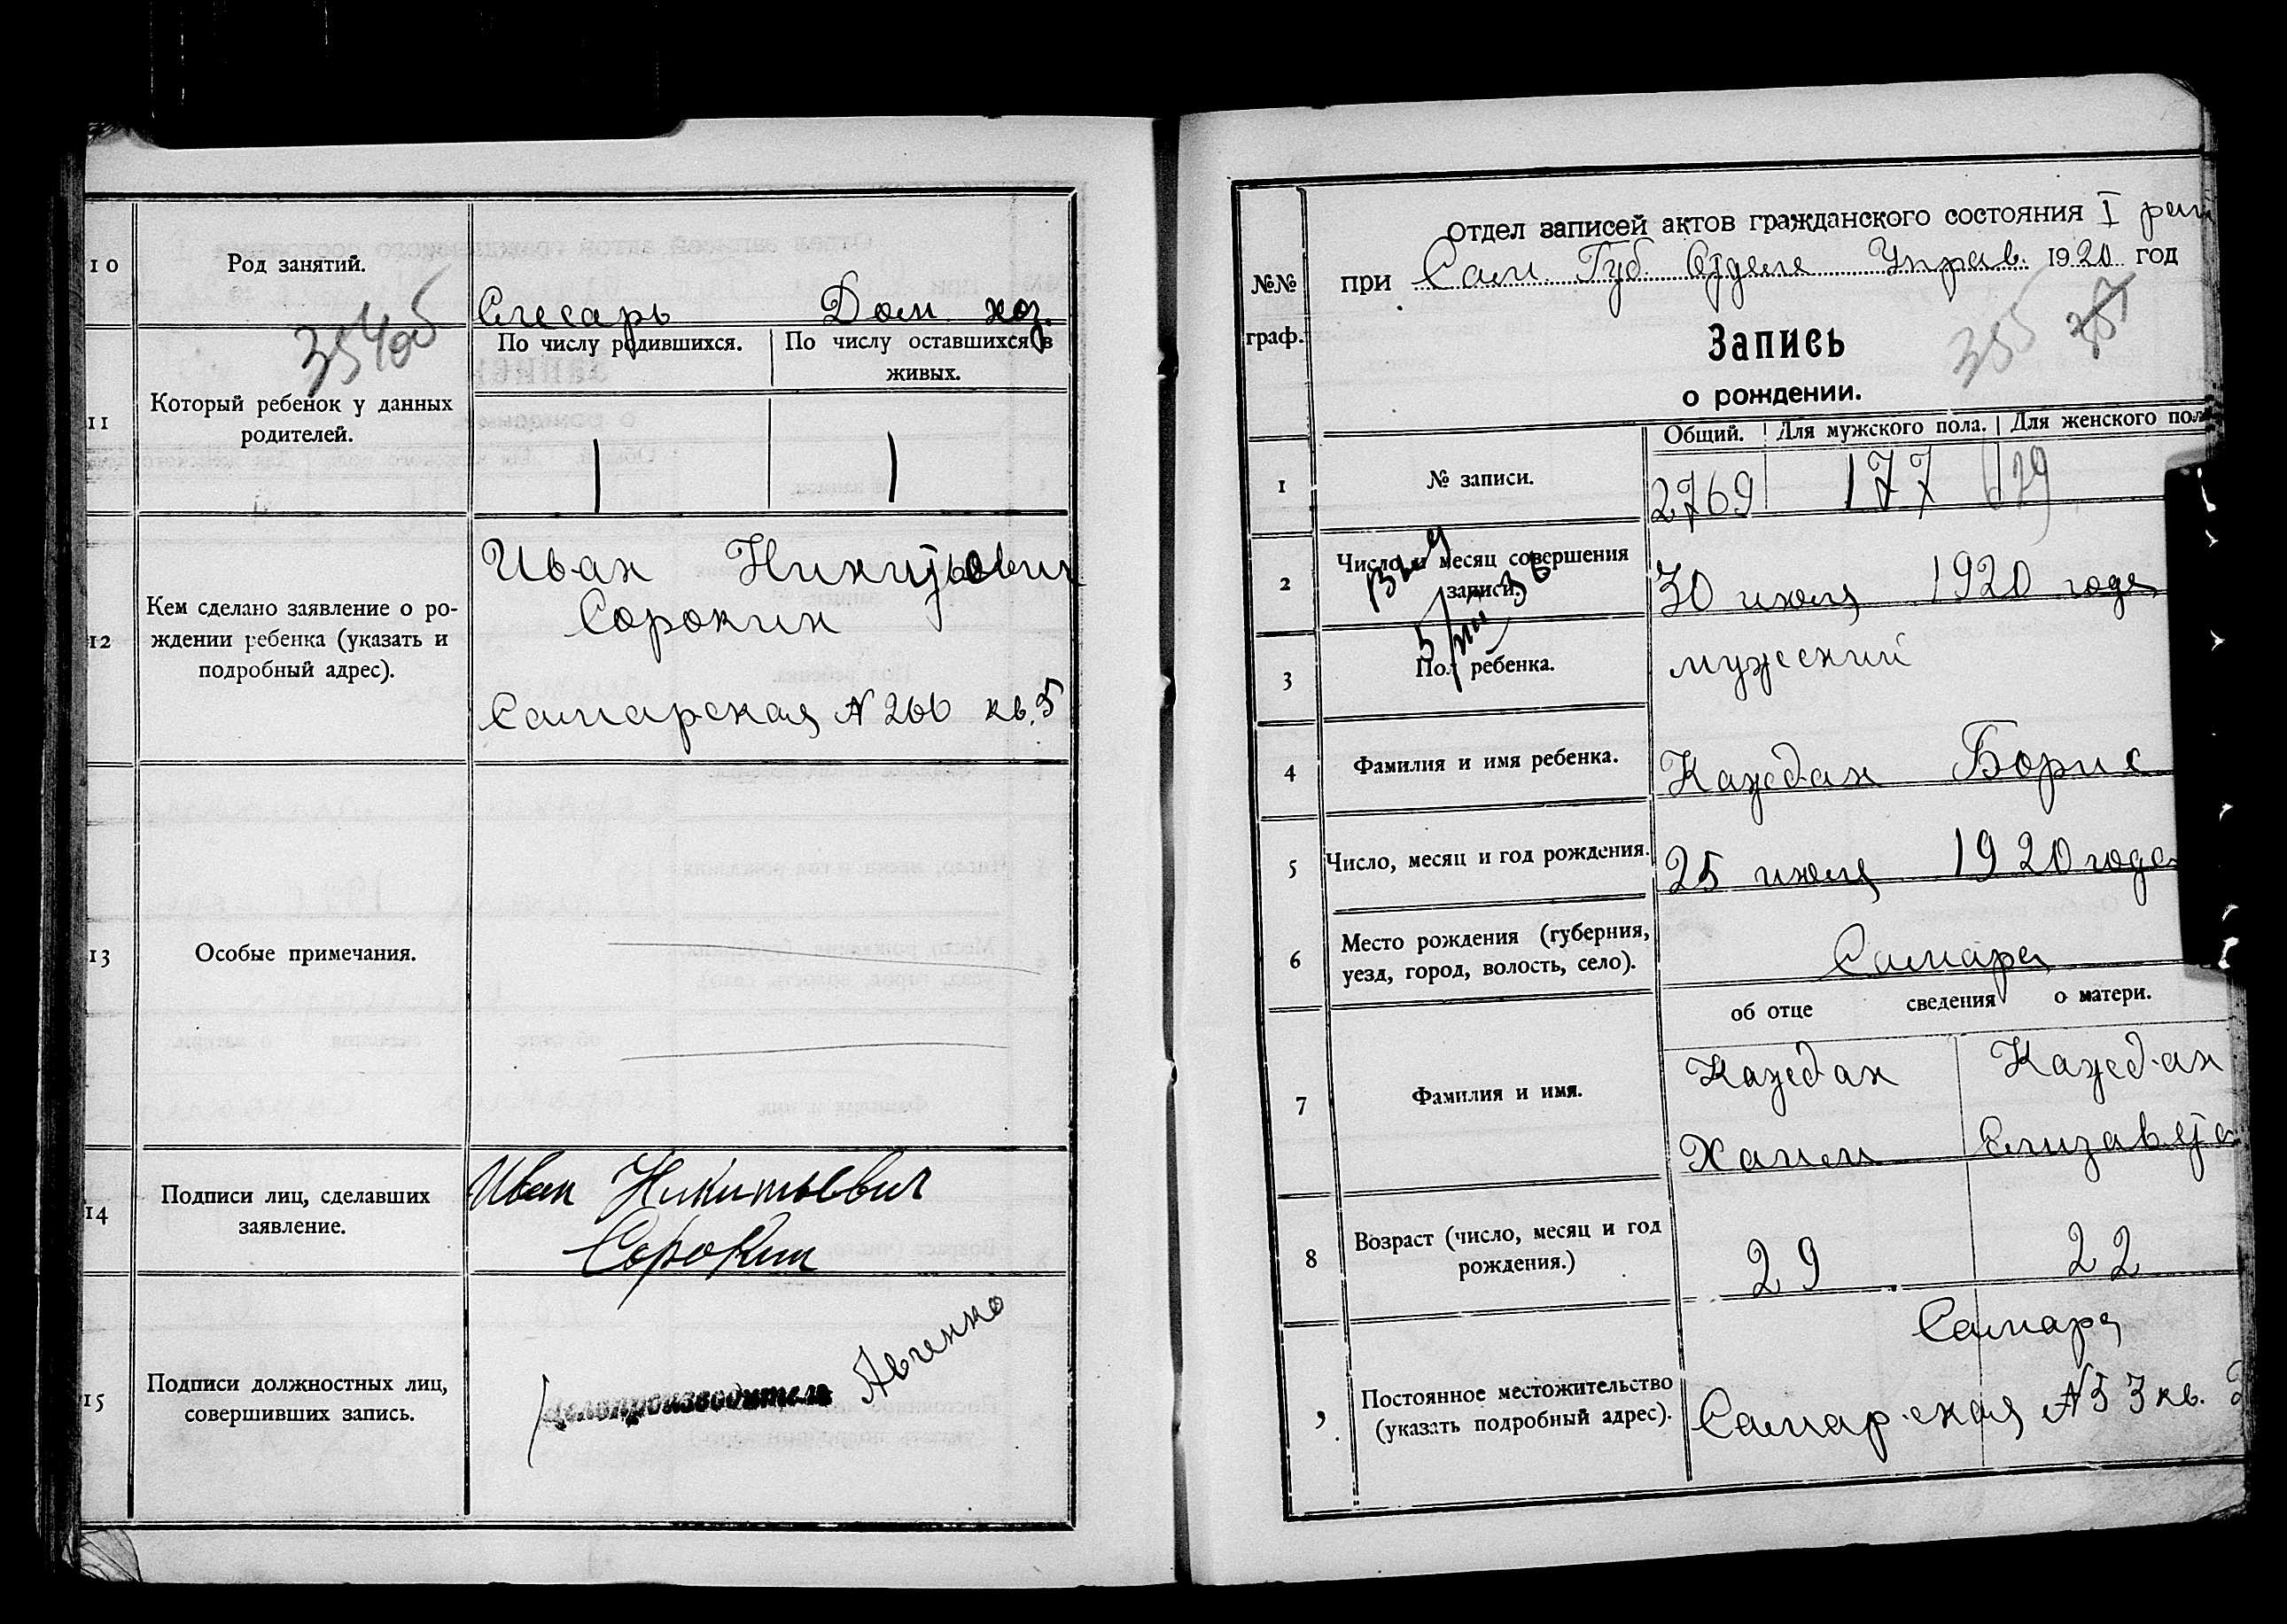 10
Род занятий.
Слесарь Дом. хоз.
354об
11
Который ребенок у данных
родителей.
По числу родившихся.
По числу оставшихся в
живых.
1
1
12
Кем сделано заявление о ро-
ждении ребенка (указать и
подробный адрес).
Иван Никитьевич
Сорокин
Самарская № 266 кв. 5
13
Особые примечания.
14
Подписи лиц, сделавших
заявление.
Иван Никитьевич
Сорокин
15
Подписи должностных лиц,
совершивших запись.
Делопроизводитель
№№
граф.
Отдел записей актов гражданского состояния I рай
при Сам. Губ. Отделе Управ. 1920 год
355
Запись
о рождении.
Общий.
Для мужского пола.
Для женского пол
1
№ записи.
2769
177
2
Число и месяц совершения
записи.
30 июля 1920 года
3
Пол ребенка.
мужской
4
Фамилия и имя ребенка.
Каждан Борис
5
Число, месяц и год рождения.
25 июля 1920 года
6
Место рождения (губерния,
уезд, город, волость, село).
Самара
об отце сведения о матери.
7
Фамилия и имя.
Каждан
Хаим
Каждан
Елизавета
8
Возраст (число, месяц и год
рождения.)
29
22
Постоянное местожительство
(указать подробный адрес).
Самара
Самарская № 53 кв.